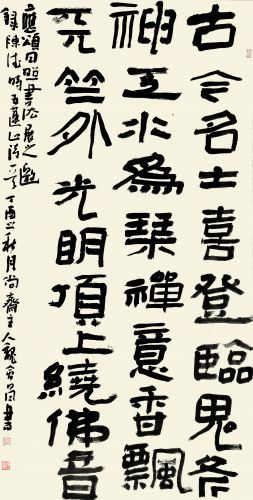 古今名士喜登臨鬼斧
神工水為琴禪意香飄
天竺外光明頂上繞佛音
應頌日照書法展之邀
錄陳時五蓮山詩一首丁酉之秋月尚齋主人魏書